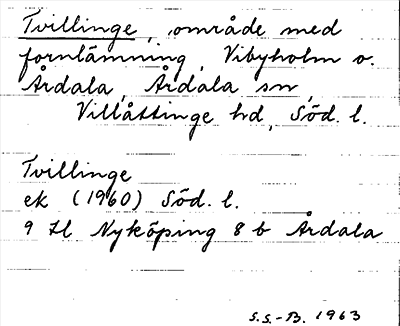 Tvillinge, område med
fornlämning, Vibyholm o.
Årdala, Årdala sn,
Villåttinge hd, Söd. l.
Tvillinge
ek (1960) Söd. l.
9 H Nyköping 8 b Årdala
S.S.-B. 1963